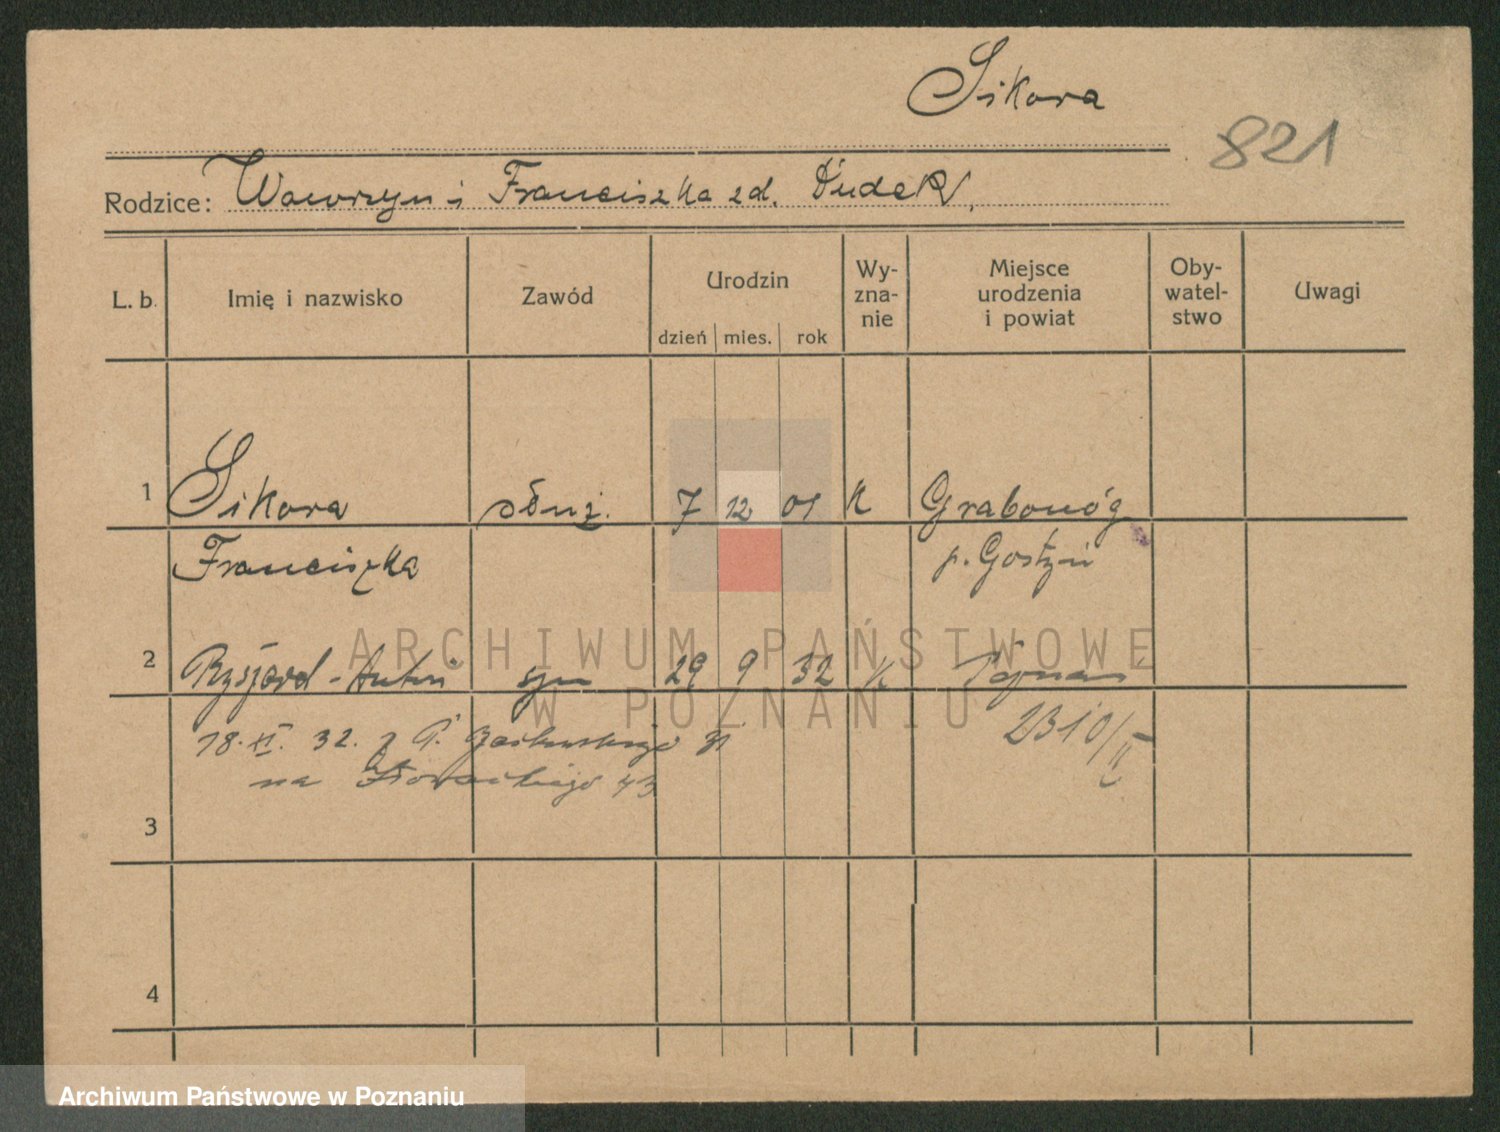 Sikora
821
Rodzice: Wawrzyn i Franciszka zd. Dudek
L. b. Imię i nazwisko Zawód Urodzin Wy-zna-nie Miejsce urodzenia i powiat Oby-watel-stwo Uwagi
dzień mies. rok
1 Sikora służ. 7 12 01 K Grabonóg
Franciszka p. Gostyń
2 Ryszard-Antoni syn 29 9 32 K Poznań
18. XI. 32. z 31 2310/II
na Słowackiego 43
3
4
ARCHIWUM PAŃSTWOWE
W POZNANIU
Archiwum Państwowe w Poznaniu